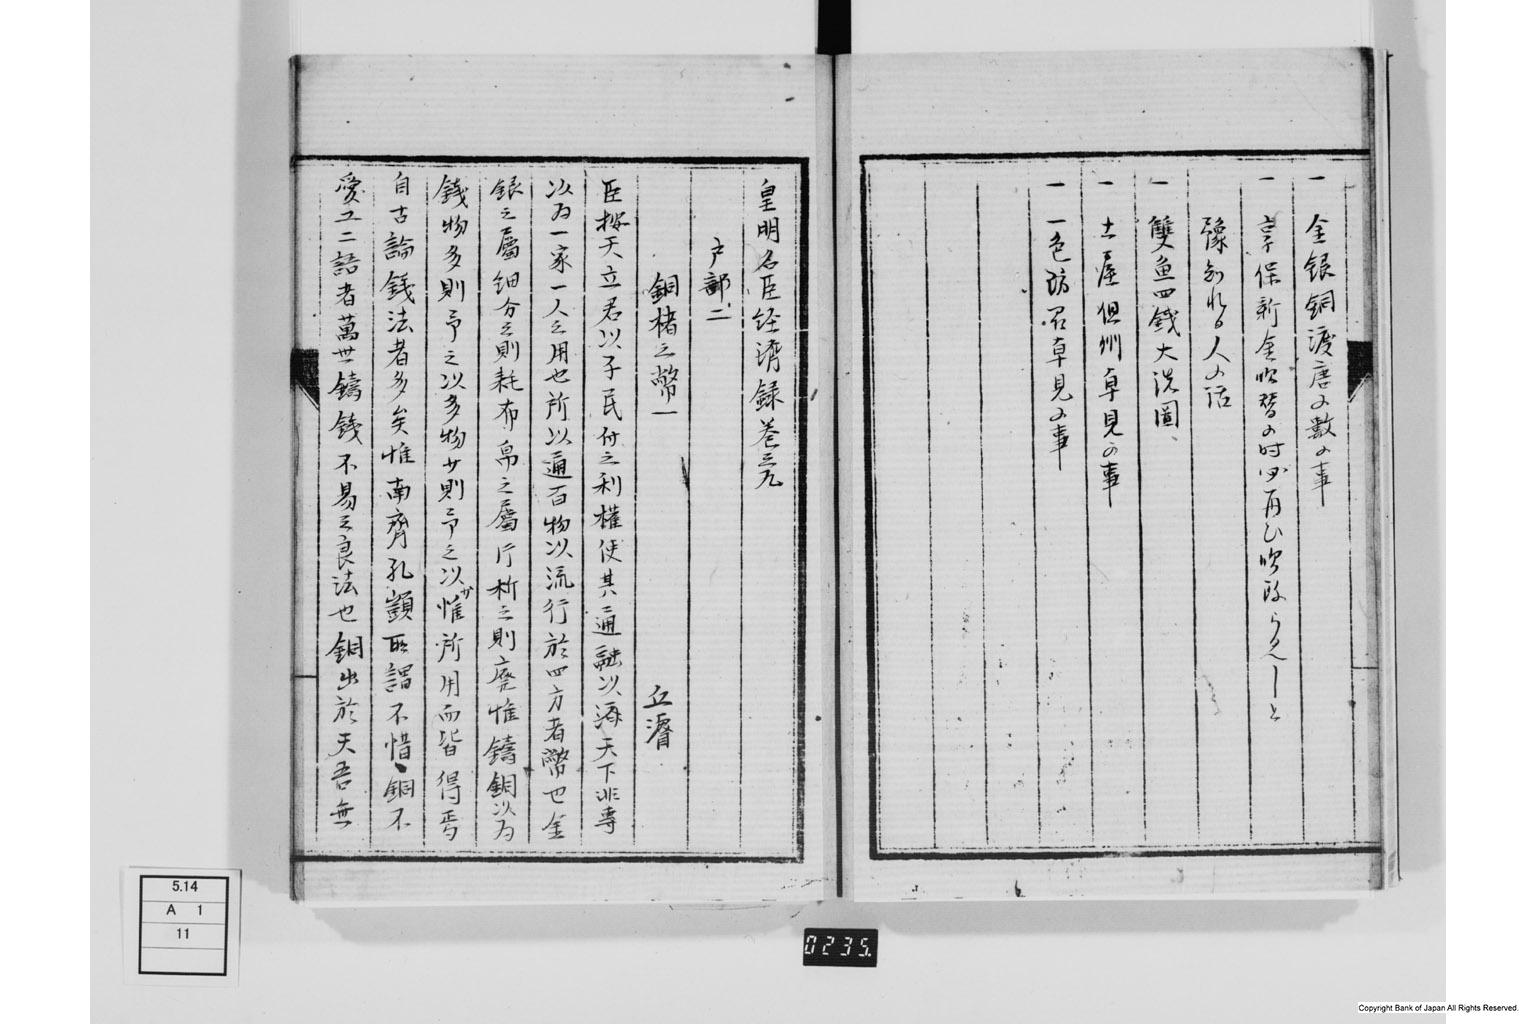 一 金銀銅渡唐の數の事
一 享保新金吹替の時
豫
人の話
一 雙魚四錢大洗圖
一 土屋但州卓見の事
一 一色防州卓見の事
皇明名臣経濟録巻之九
户部二
銅楮之幣一
丘濬
臣按天立君以子民付之利權使其通融以濟天下非專
以为一家一人之用也所以通百物以流行於四方者幣也金
銀之屬细分之則耗布帛之屬片析之則廃惟鑄銅以为
錢物多則予之以多物少則予之以少惟所用而皆得焉
自古論錢法者多矣惟南齊孔顗所謂不惜銅不
愛工二語者萬世鑄錢不易之良法也銅出於天吾無
5.14
A 1
11
0235.
Copyright Bank of Japan All Rights Reserved.